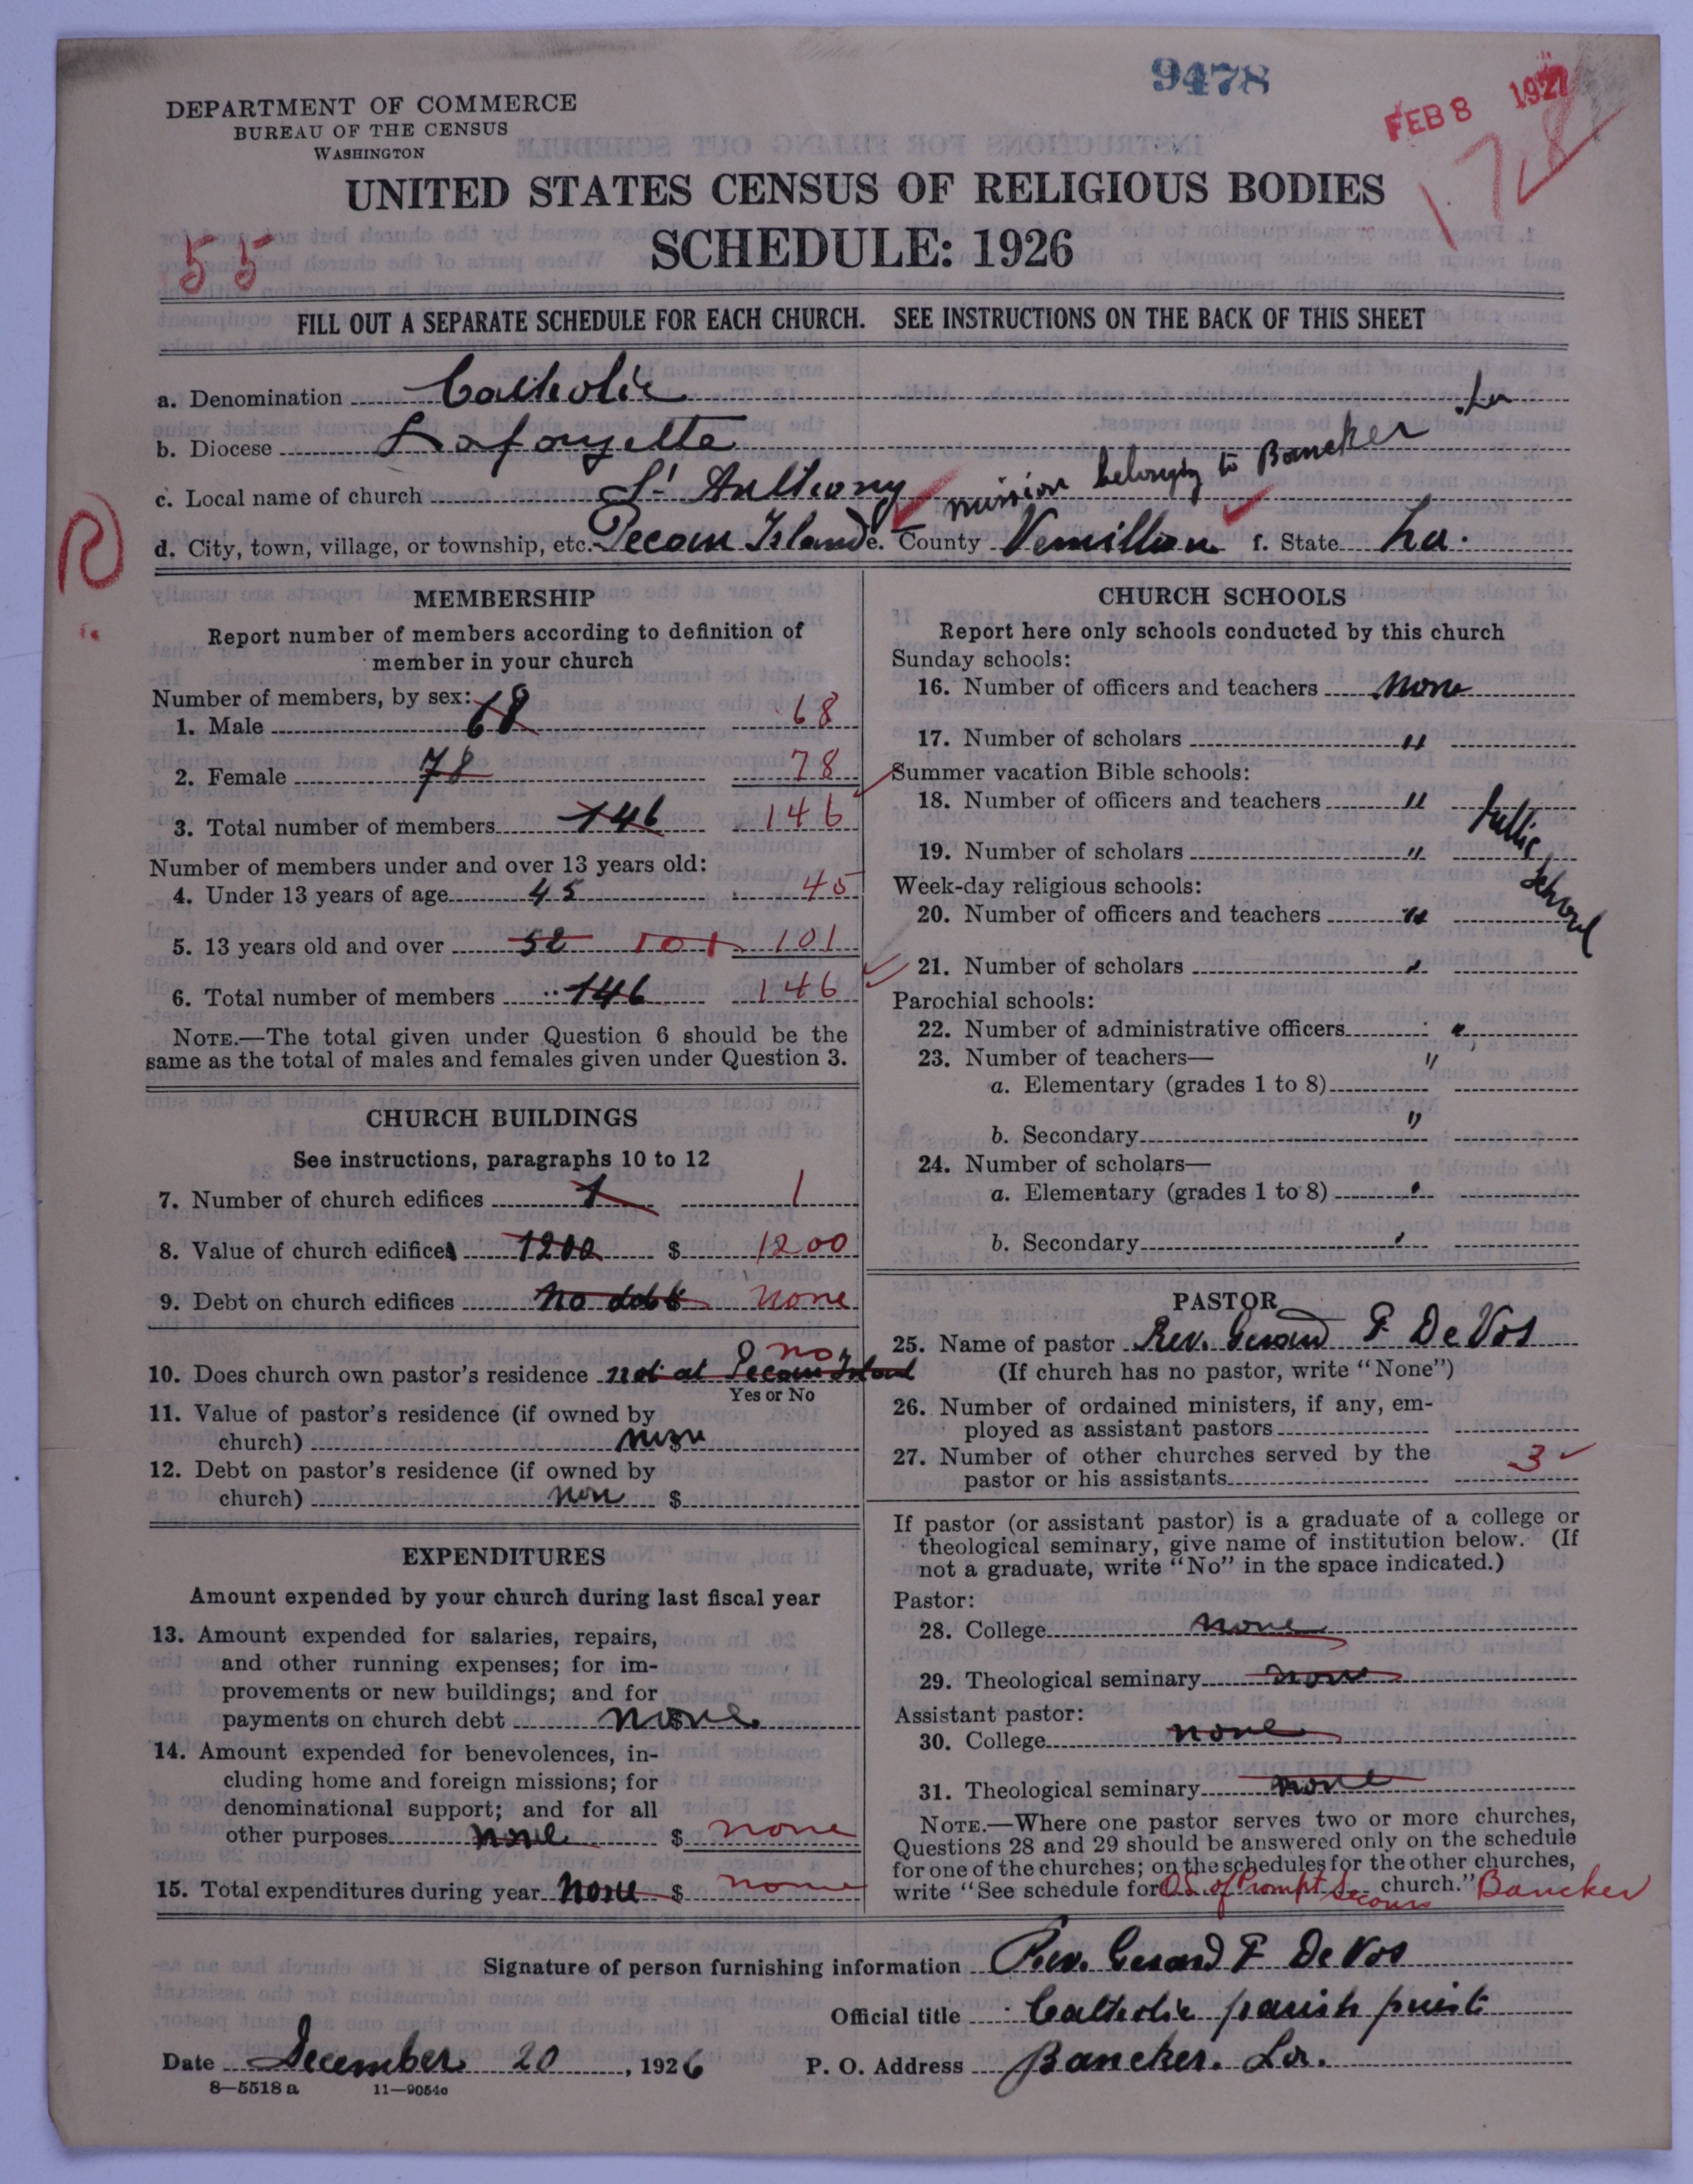 9478
FEB 8 1927
178
DEPARTMENT OF COMMERCE
BUREAU OF THE CENSUS
WASHINGTON
UNITED STATES CENSUS OF RELIGIOUS BODIES
SCHEDULE: 1926
55
FILL OUT A SEPARATE SCHEDULE FOR EACH CHURCH. SEE INSTRUCTIONS ON THE BACK OF THIS SHEET
a. Denomination Catholic
b. Diocese Lafayette
c. Local name of church St Anthony mission belongig to Bancker La
R
d. City, town, village, or township, etc. Pecan Island e. County Vermillion f. State La.
MEMBERSHIP
Report number of members according to definition of
member in your church
Number of members, by sex:
1. Male 68 68
2. Female 78 78
3. Total number of members 146 146
Number of members under and over 13 years old:
4. Under 13 years of age 45 45
5. 13 years old and over 52 101 101
6. Total number of members 146 146
NOTE.—The total given under Question 6 should be the
same as the total of males and females given under Question 3.
CHURCH BUILDINGS
See instructions, paragraphs 10 to 12
7. Number of church edifices 1 1
8. Value of church edifices 1200 $ 1200
9. Debt on church edifices no debt none
10. Does church own pastor's residence not at Pecan Island no
Yes or No
11. Value of pastor's residence (if owned by
church) non
12. Debt on pastor's residence (if owned by
church) non $
EXPENDITURES
Amount expended by your church during last fiscal year
13. Amount expended for salaries, repairs,
and other running expenses; for im-
provements or new buildings; and for
payments on church debt none
14. Amount expended for benevolences, in-
cluding home and foreign missions; for
denominational support; and for all
other purposes none $ none
15. Total expenditures during year none $ none
CHURCH SCHOOLS
Report here only schools conducted by this church
Sunday schools:
16. Number of officers and teachers none
17. Number of scholars "
Summer vacation Bible schools:
18. Number of officers and teachers "
19. Number of scholars "
Public School
Week-day religious schools:
20. Number of officers and teachers "
21. Number of scholars "
Parochial schools:
22. Number of administrative officers "
23. Number of teachers— "
a. Elementary (grades 1 to 8)
b. Secondary "
24. Number of scholars—
a. Elementary (grades 1 to 8) "
b. Secondary "
PASTOR
25. Name of pastor Rev. Gerard F DeVos
(If church has no pastor, write "None")
26. Number of ordained ministers, if any, em-
ployed as assistant pastors
27. Number of other churches served by the
pastor or his assistants 3
If pastor (or assistant pastor) is a graduate of a college or
theological seminary, give name of institution below. (If
not a graduate, write "No" in the space indicated.)
Pastor:
28. College none
29. Theological seminary none
Assistant pastor:
30. College none
31. Theological seminary none
NOTE.—Where one pastor serves two or more churches,
Questions 28 and 29 should be answered only on the schedule
for one of the churches; on the schedules for the other churches,
write "See schedule for O.L. of Prompt Secours church." Bancker
Signature of person furnishing information Rev. Gerard F DeVos
Official title Catholic parish priest
Date December 20, 1926 P. O. Address Bancker. La.
8—5518 a 11—9054c